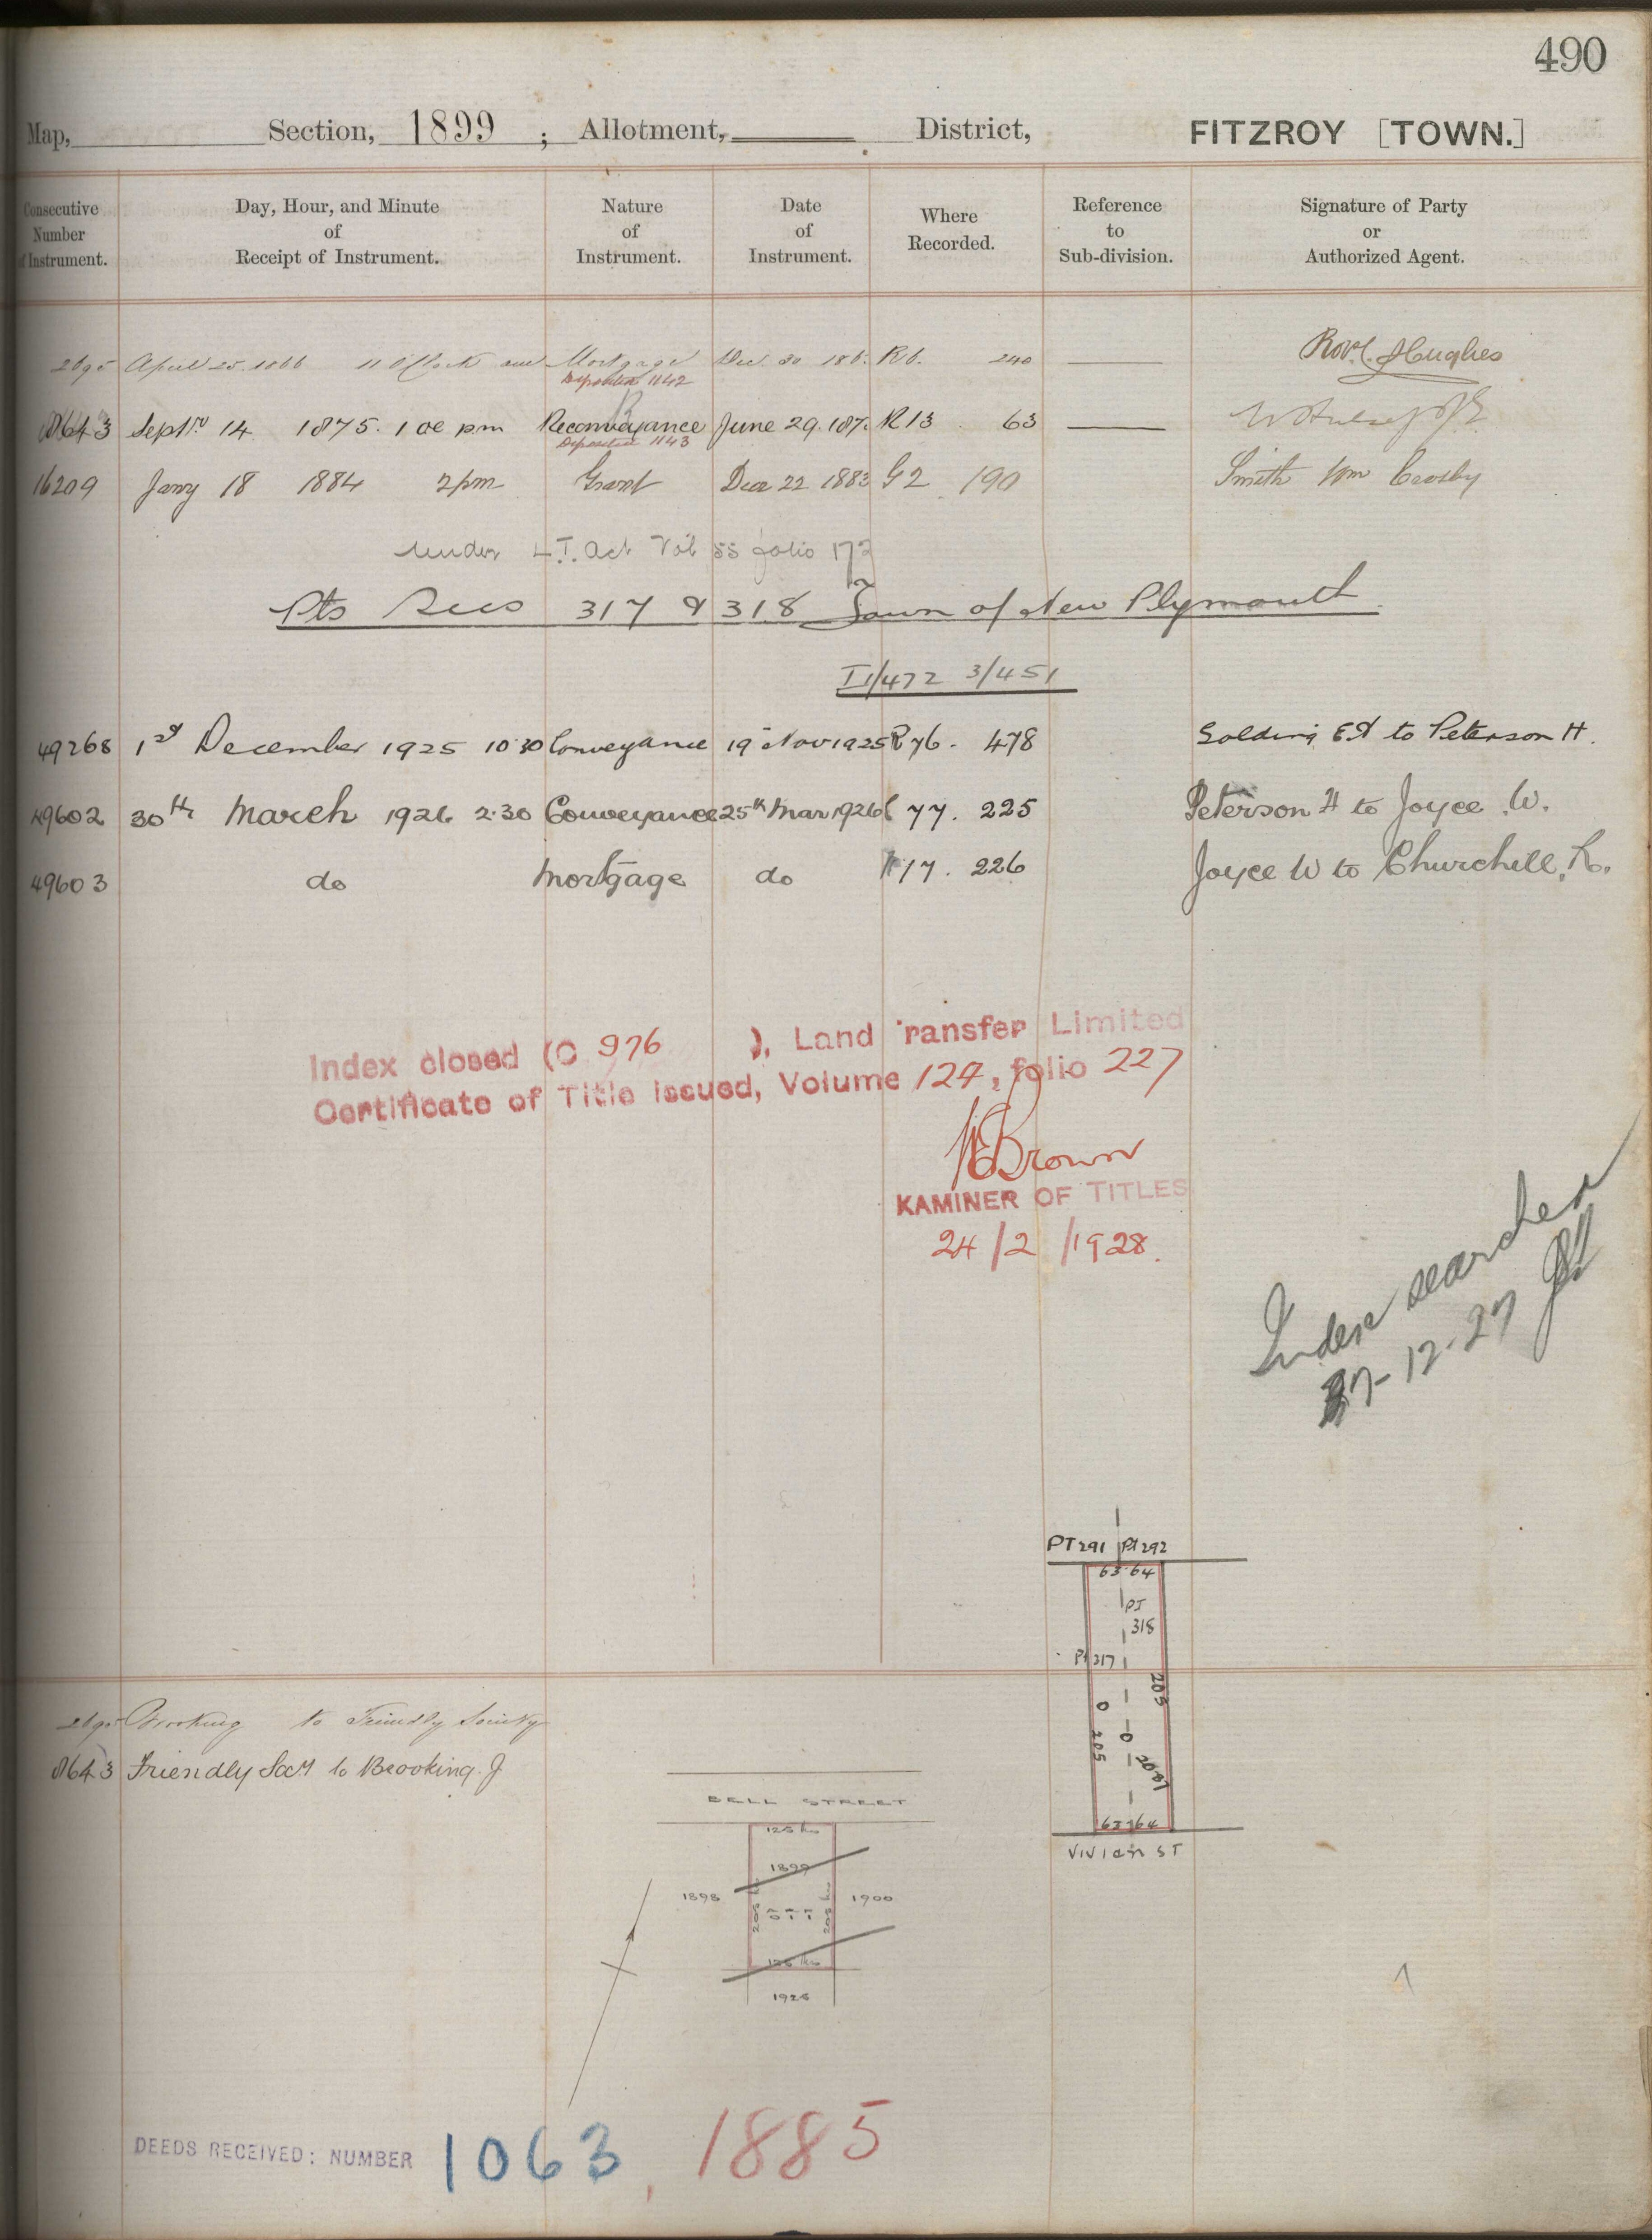 490
Map, Section, 1899 ; Allotment, District, FITZROY [TOWN.]
Consecutive Number of Instrument.
Day, Hour, and Minute of Receipt of Instrument.
Nature of Instrument.
Date of Instrument.
Where Recorded.
Reference to Sub-division.
Signature of Party or Authorized Agent.
2695 April 25. 1866 11 O'Clock am Mortgage Dec. 30 186 R6. 240 Hughes
Deposited 1142
8643 Septr 14 1875. 1 oc pm Reconveyance June 29. 187 R13 63
Deposited 1143
16209 Jany 18 1884 2pm Grant Dec 22 1883 G2 190 Smith Wm Crosby
under L.T. Act Vol 55 folio 172
Pts Secs 317 & 318 Town of New Plymouth
I1/472 3/451
49268 1st December 1925 10·30 Conveyance 19th Nov 1925 R76. 478 Golding E A to Peterson H.
49602 30th March 1926 2·30 Conveyance 25th Mar 1926 77. 225 Peterson H to Joyce W.
49603 do Mortgage do 77. 226 Joyce W to Churchill, R.
Index closed (C 976 ), Land ransfer Limited
Certificate of Title issued, Volume 124, folio 227
Brown
KAMINER OF TITLES
24/2/1928.
Index searched
27-12-27
PT 291 Pt 292
63·64
PT
318
Pt 317
205
0
0
205
63·64
VIVIAN ST
2695 Brooking to Friendly Society
8643 Friendly Socty to Brooking. J
BELL STREET
125 lks
1899
1898
1900
0 1 1
208
208
125 lks
1926
DEEDS RECEIVED: NUMBER 1063, 1885